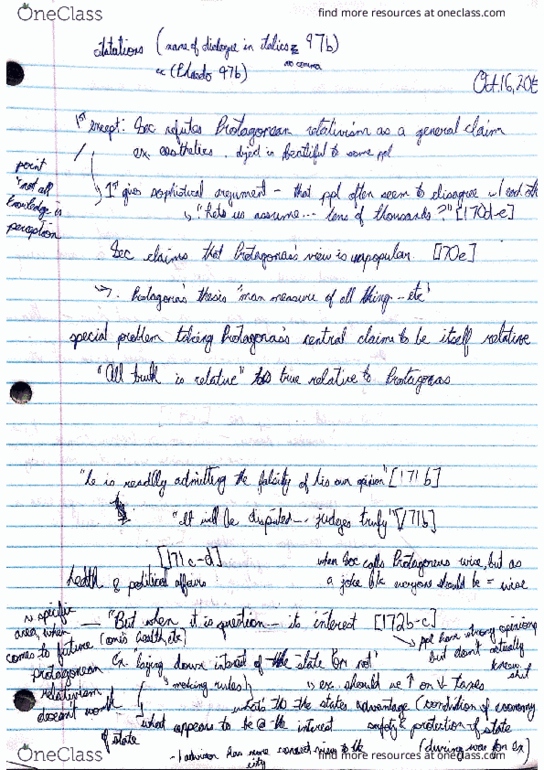 OneClass
find more resources at oneclass.com
citations (name of dialogue in italics 97b)
no comma
ex (Phaedo 97b)
Oct. 16, 20
1st excerpt: Soc refutes Protagorean relativism as a general claim
ex. aesthetics, object is beautiful to some ppl
point "not all knowledge is perception
1st gives sophistical argument - that ppl often seem to disagree w/
"Let us assume... tens of thousands?" [170d-e]
Soc claims that Protagoras's view is unpopular. [170e]
Protagoras thesis "man measure of all things - etc"
special problem taking Protagoras's central claim to be itself relative
"All truth is relative" true relative to Protagoras
"he is readily admitting the falsity of his own opinion" [171b]
"It will be disputed... judges truly" [171b]
[171c-d]
health & political affairs
when Soc calls Protagoras wise, but as
a joke b/c everyone should be = wise
specific area, when comes to future (one's health, etc) protagorean relativism doesn't work
"But when it is question - its interest [172b-c]
ppl have strong opinions but don't actually know shit
Ex "laying down interest of the state or not"
(making rules)
ex. should we ↑ or ↓ taxes
what's the states advantage (condition of economy
what appears to be @ the interest of state
safety & protection of state
(during war for ex)
1 advisor has more correct view to the city
OneClass
find more resources at oneclass.com